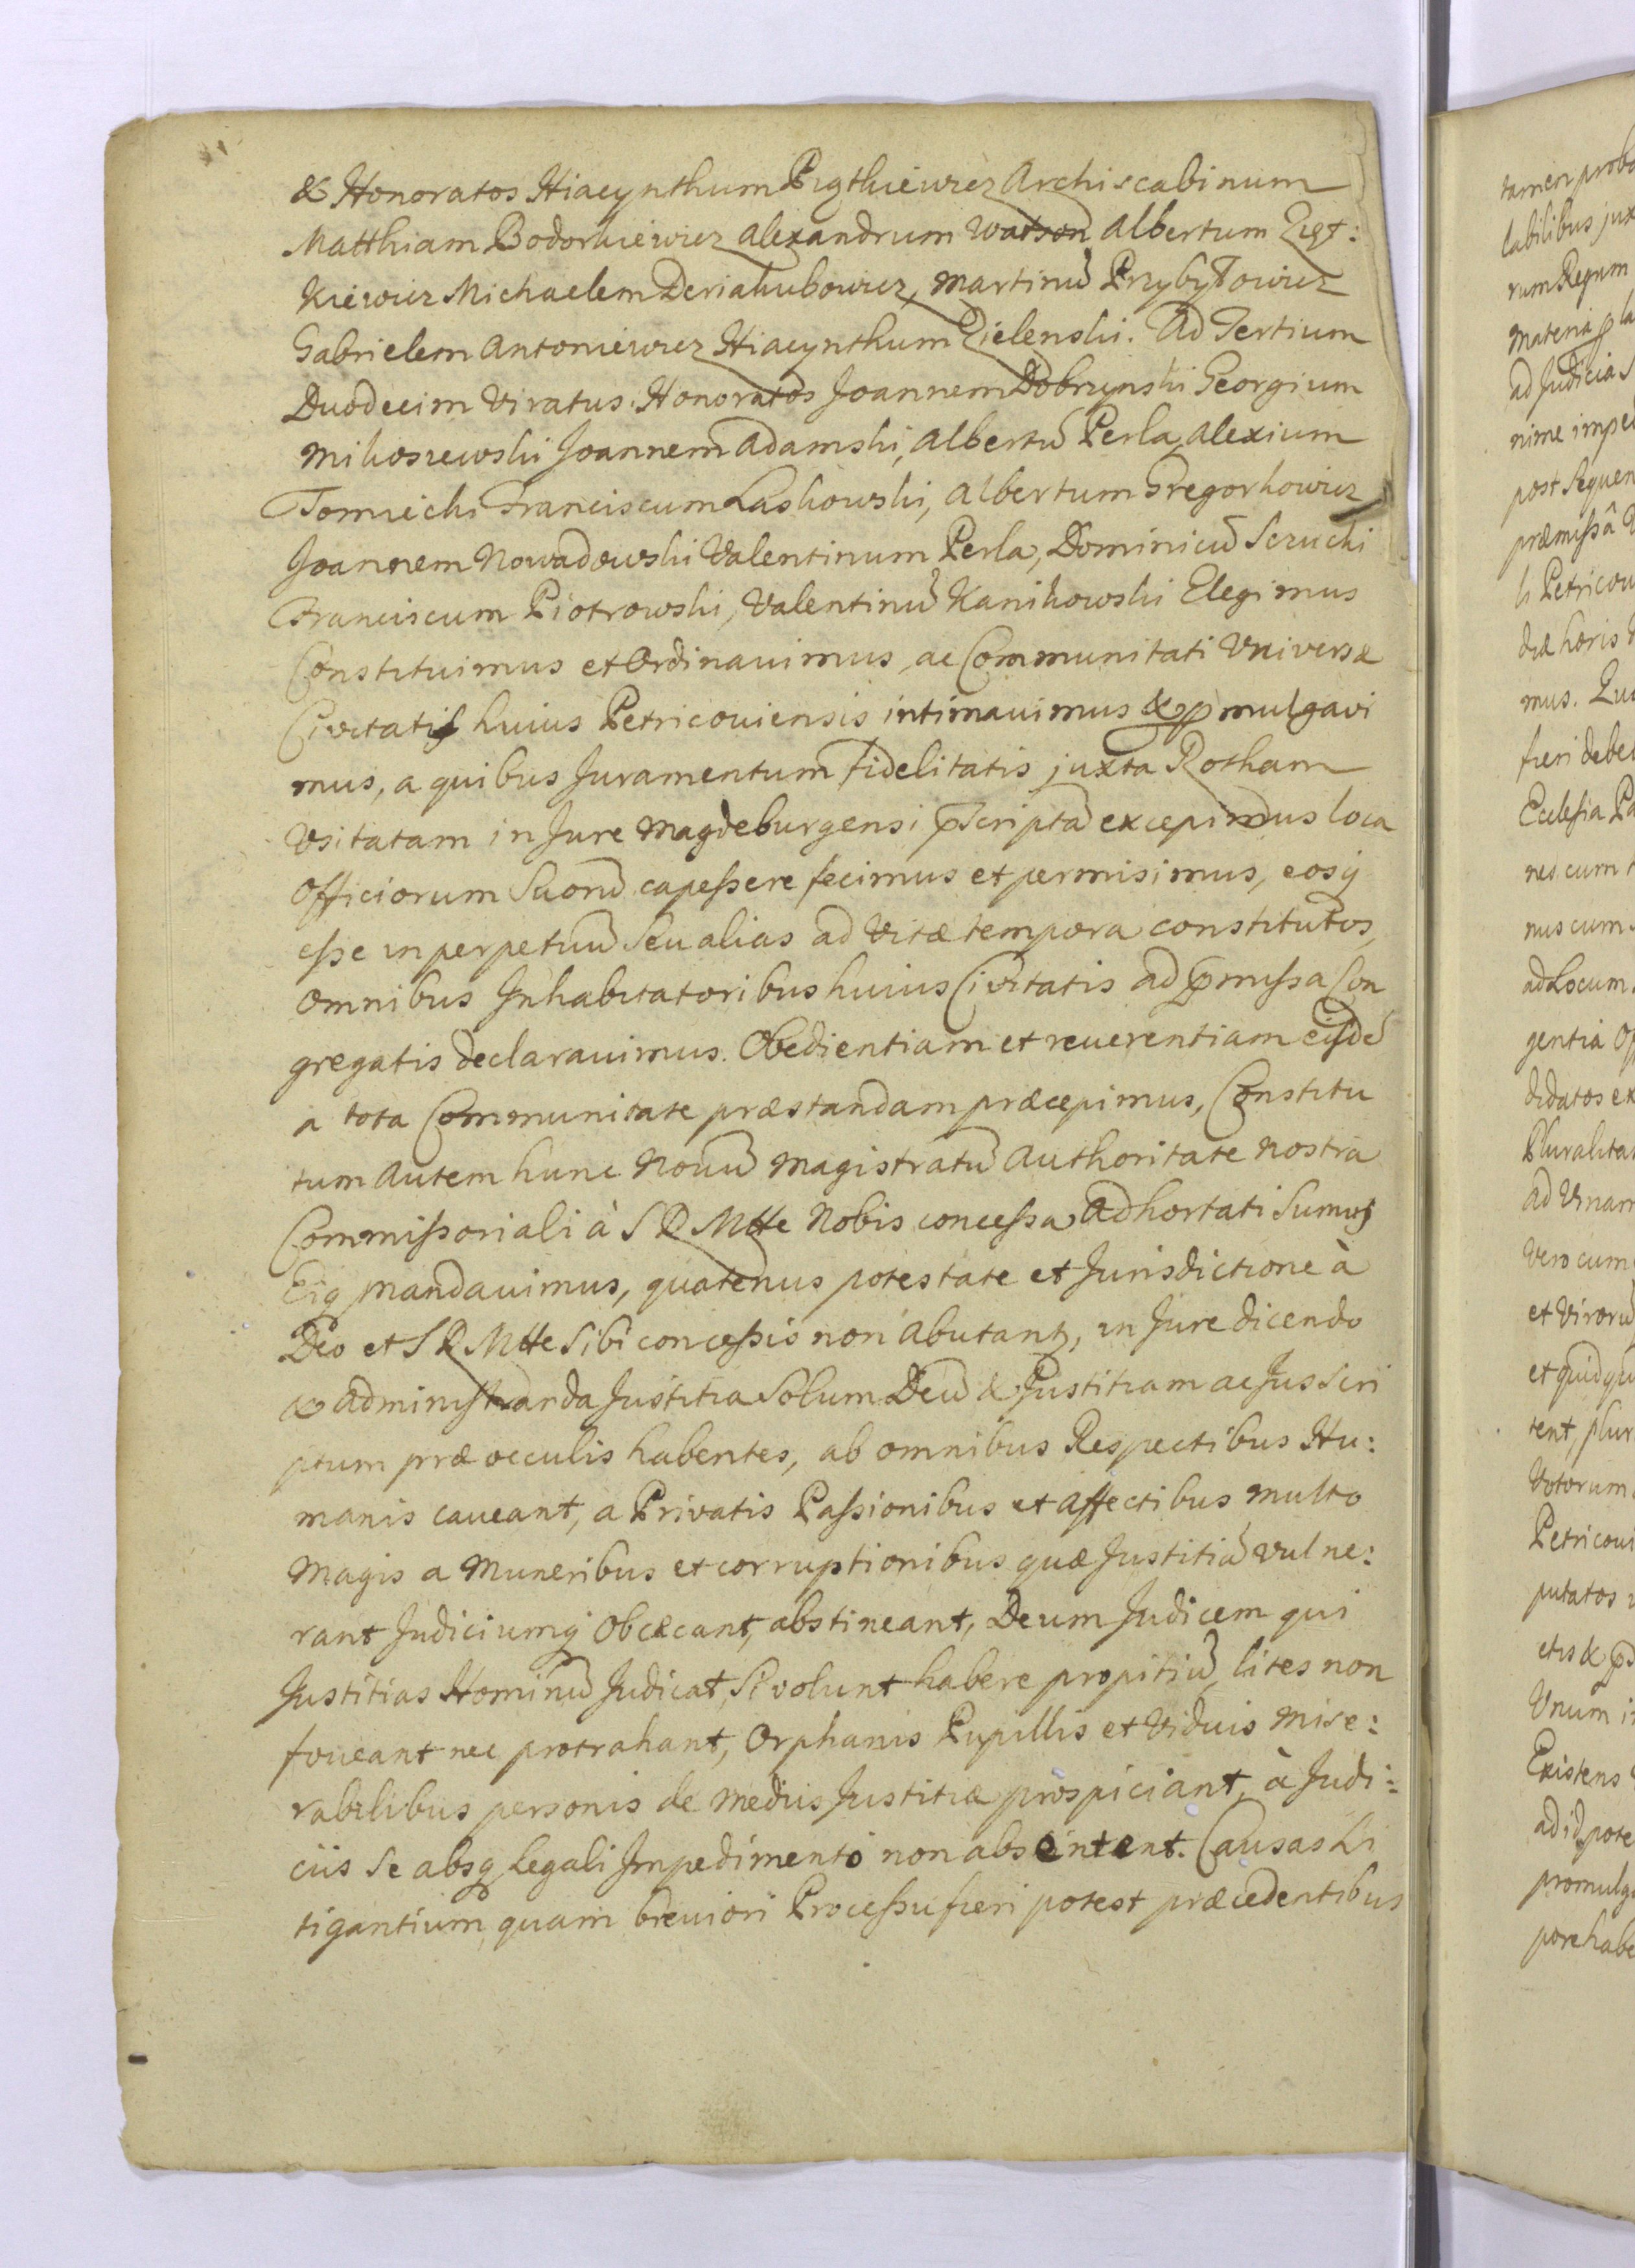 & Honoratos Hiacynthum Piąthiewicz Archiscabinum
Matthiam Bodorkiewicz Alexandrum Watson Albertum Zięt:
kiewicz Michaelem Deriakubowicz, Martinū Przybyłowicz
Gabrielem Antoniewicz Hiacynthum Zielenski. Ad Tertium
Duodecim Viratus. Honoratos Joannem Dobrzynski Georgium
Mikoszewski Joannem Adamski, Albertū Perla, Alexium
Tomicchi Franciscum Laskowski, Albertum Gregorkowicz
Joannem Nowadowski Valentinum Perla, Dominicū Szruchi
Franciscum Piotrowski, Valentinū Kanikowski Elegimus
Constituimus et Ordinauimus, ac Communitati Vniversæ
Civitatis huius Petricouiensis intimauimus & ꝓmulgavi
mus, a quibus Juramentum Fidelitatis juxta Rotham
Vsitatam in Jure Magdeburgensi ꝓscriptā excepimus loca
Officiorum Suorū capessere fecimus et permisimus, eosq
esse in perpetuū Seu alias ad Vitæ tempora constitutos,
Omnibus Inhabitatoribus huius Civitatis ad p̄missa Con
gregatis declarauimus. Obedientiam et reuerentiam eisdē
a tota Communitate præstandam præcepimus, Constitu
tum autem hunc Nouū Magistratū Authoritate nostra
Commissoriali à S R Mtte Nobis concessa, adhortati Sumus
Eiq mandauimus, quatenus potestate et Jurisdictione à
Deo et S R Mtte Sibi concessis non abutantr, in Jure dicendo
& administranda Justitia Solum Deū & Justitiam ac Jus Scri
ptum præ occulis habentes, ab omnibus Respectibus Hu:
manis caueant, a Privatis Passionibus et affectibus multo
Magis a Muneribus et corruptionibus quæ Justitiā vulne:
rant Judiciumq Obcæcant, abstineant, Deum Judicem qui
Justitias Hominū Judicat, Si volunt habere propitiū, lites non
foueant nec protrahant, Orphanis Pupillis et Viduis Mise:
rabilibus personis de Mediis Justitiæ prospiciant, à Judi:
ciis Se absq Legali Impedimento non absentent. Causas Li
tigantium quam breuiori Processu fieri potest præcedentibus
tamen
labilibus
rum Regum
Materia
ad Judicia
nime
post Sequen
præmissâ
Petricou
horis
mus.
fieri debe
Ecclesia Pa
nes cum
nus cum
ad Locum
gentia
didatos ex
Pluralitas
ad Vnam
Vero cum
et Virorū
et quid
tent, plur
Votorum
Petricoui
putatos
Vnum
Existens
ad id pote
promulg
pore habe